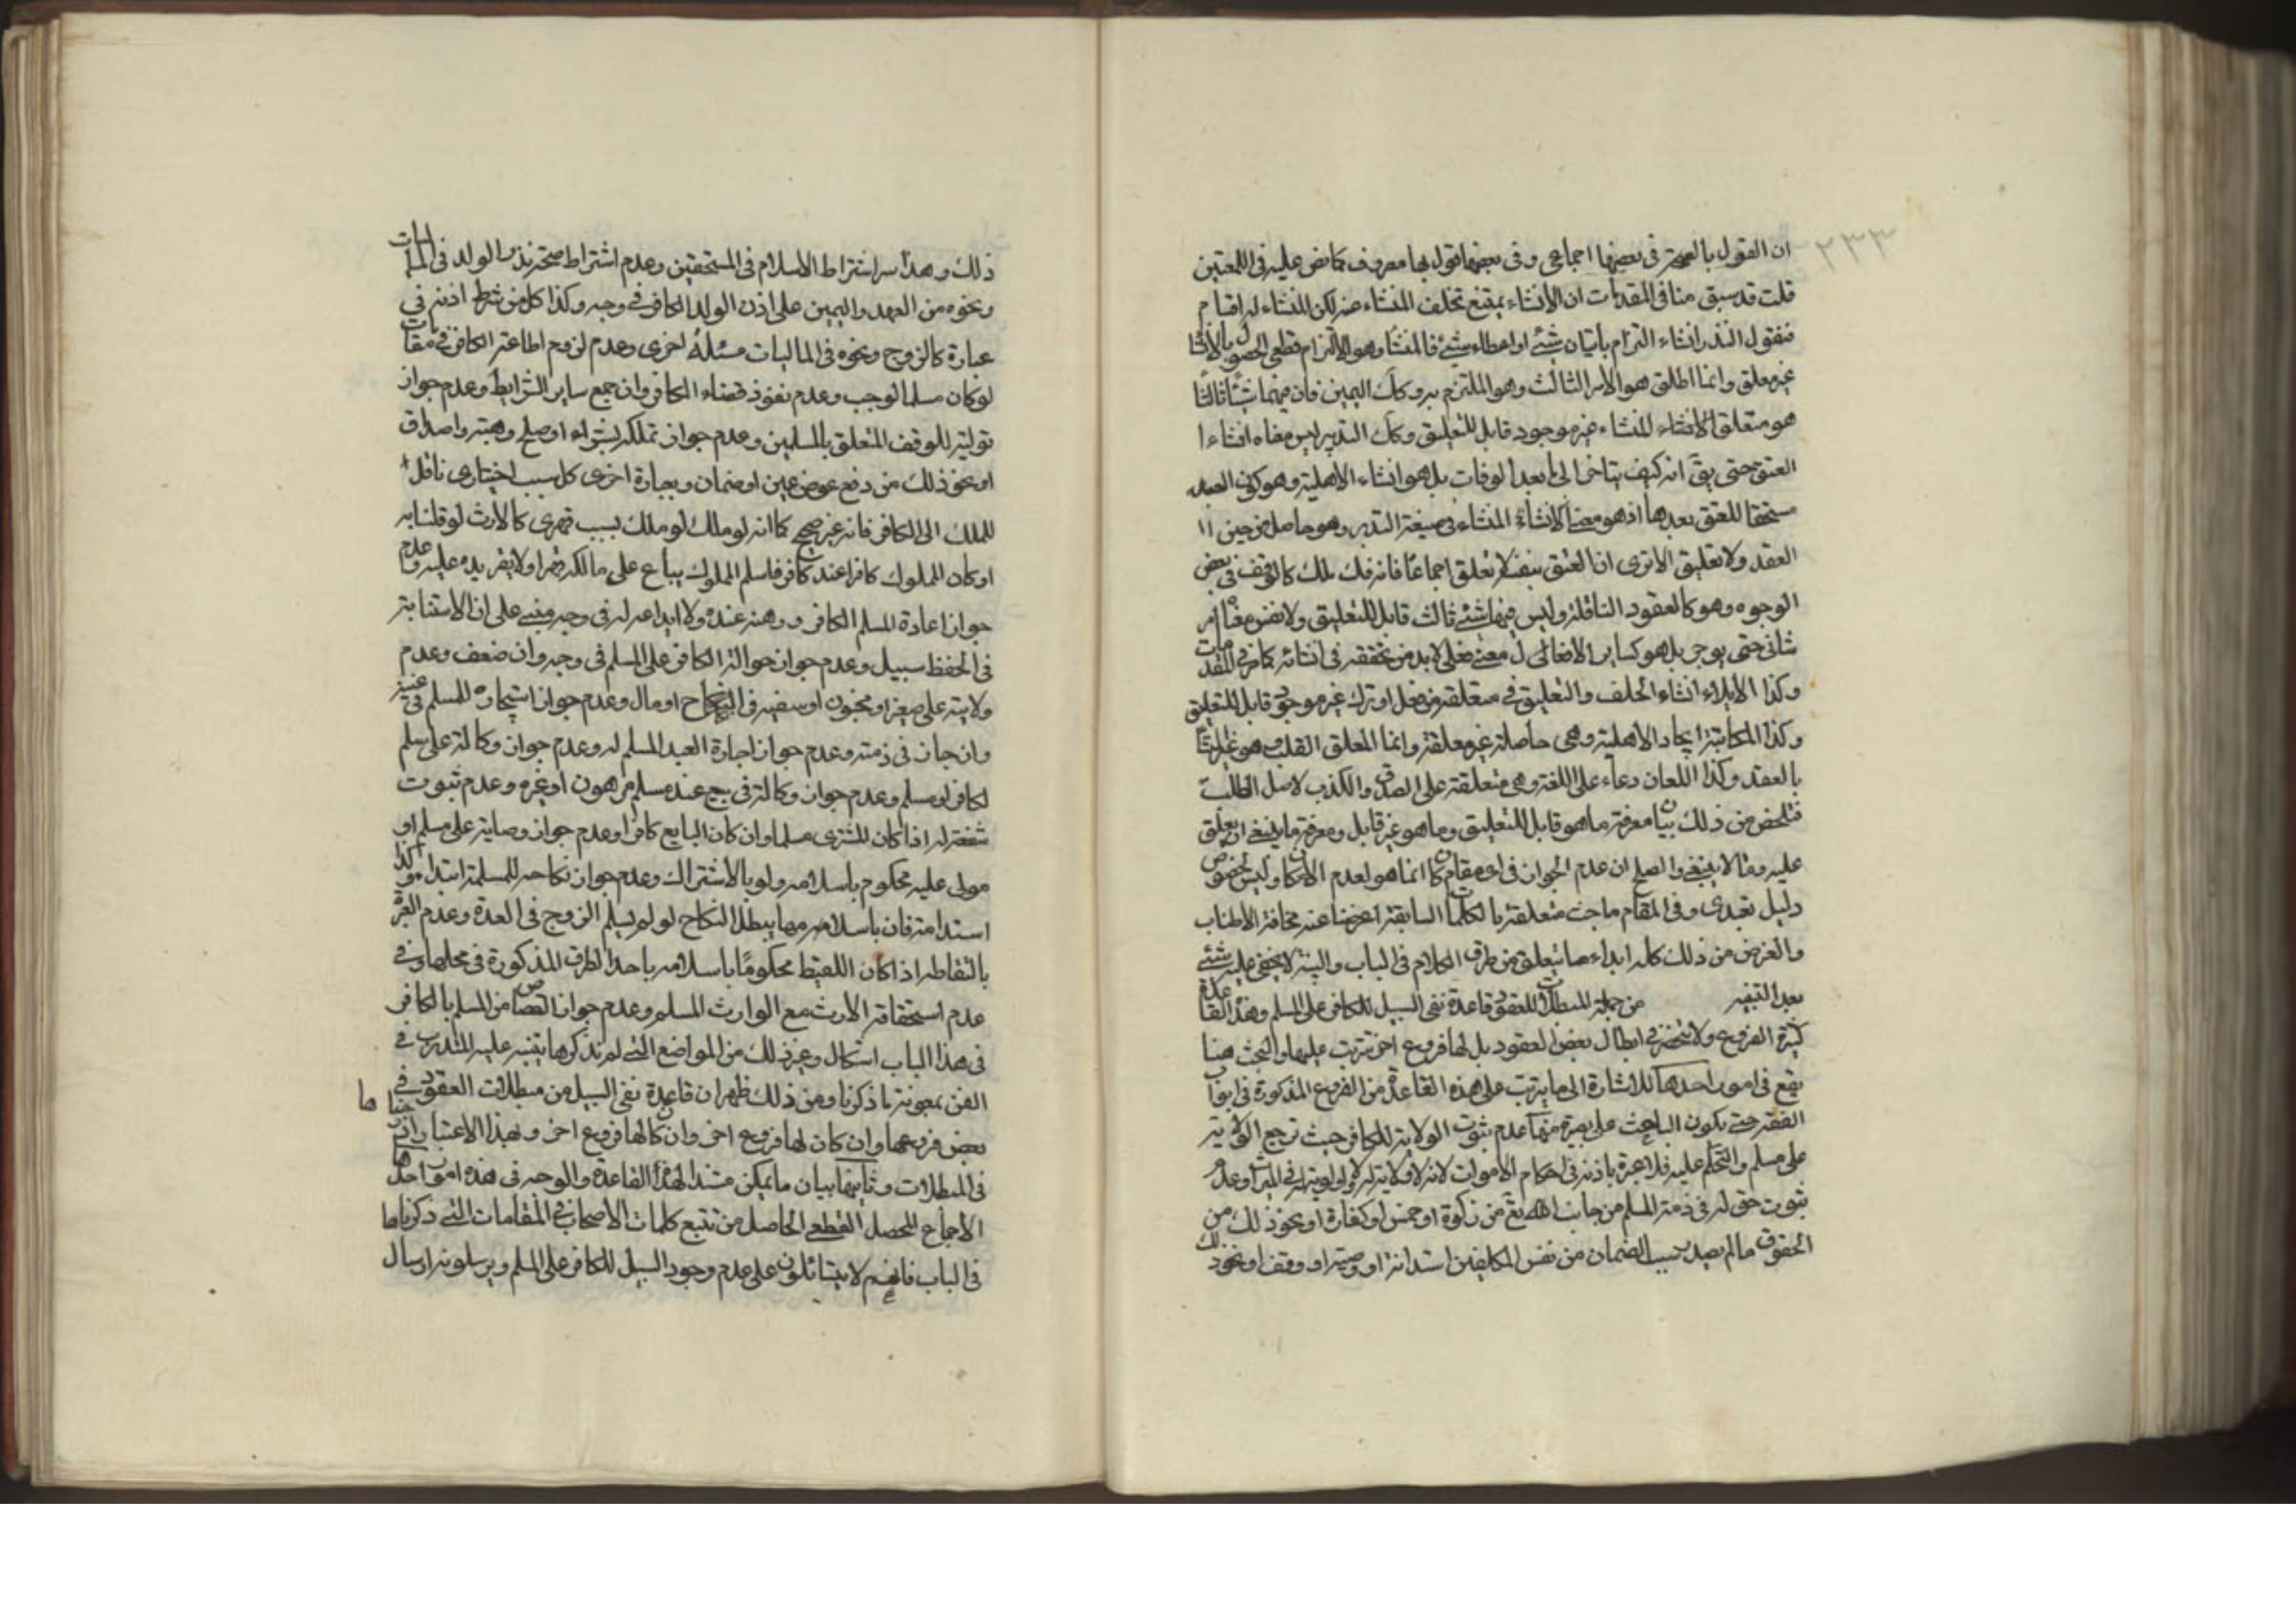 ٢٣٣
ان القول بالصحة في بعضها اجماعي وفي بعضها قول بها معروف كما نص عليه في اللمعتين
قلت قد سبق منا في المقدمات ان الانشاء يمتنع تخلف المنشاء عنه لكن المنشاء له اقسام
فنقول النذر انشاء التزام باتيان شئ او اعطاء شئ فالمنشأ وهو الالتزام قطعي الحصول بالانشا
غير معلق وانما اطلق هو الامر الثالث وهو الملتزم به وكك اليمين فان فيهما شيئا ثالثا
هو متعلق الانشاء المنشاء غير موجود قابل للتعليق وكك التدبير ليس معناه انشاء ا
العتق حتى يق انه كيف يتاخر الى ما بعد الوفات بل هو انشاء الاهلية وهو كون العبد
مستحقا للعتق بعدها اذ هو معنى الانشاء المنشاء في صيغة التدبير وهو حاصل من حين ١١
العقد ولا تعليق الا ترى ان العتق بنفسه لا تعلق اجماعا فانه فك ملك كالوقف في بعض
الوجوه وهو كالعقود الناقلة وليس فيها شئ ثالث قابل للتعليق ولا نفس معناه امر
شاني حتى يوجر بل هو كساير الافعال معنى فعلي لابد من تحققه في انشائه كما مر في المقدمات
وكذا الايلاء انشاء الحلف والتعليق في متعلقه من فعل او ترك غير موجود قابل للتعليق
وكذا المكاتبة ايجاد الاهلية وهي حاصلة غير معلقة وانما المعلق
بالعقد وكذا اللعان دعاء على اللغة وهي متعلقة على الصدق والكذب لا صل الطلب
فتلخص من ذلك بيان معرفة ما هو قابل للتعليق وما هو غير قابل ومعرفة ما ينبغي ان يعلق
عليه ومما لا ينبغي والصلح ان عدم الجواز في اي مقام كان انما هو لعدم الامكان وليس لخصوص
دليل تعبدي وفي المقام مباحث متعلقة بالكلمات السابقة اعرضنا عنه مخافة الاطناب
والغرض من ذلك كله ابداء ما يتعلق من طرق الكلام في الباب والبتة لا يخفى عليه شئ
بعد التنبيه من جملة المبطلات للعقود قاعدة نفي السبيل للكافر على المسلم وهذه القاعدة
كثيرة الفروع ولا تنحصر في ابطال بعض العقود بل لها فروع اخر تترتب عليها والبحث هنا
يقع في امور احدها للاشارة الى ما يترتب على هذه القاعدة من الفروع المذكورة في ابواب
الفقه حتى يكون الباحث على بصيرة منها عدم ثبوت الولاية للكافر حيث ترجع الولاية
على مسلم والتحكم عليه فلا عبرة باذنه في احكام الاموات لانه لا ولاية له ولا اولوية له في الميراث وعدم
ثبوت حق له في ذمة المسلم من جانب الله تع من زكوة او خمس او كفارة او نحو ذلك من
الحقوق ما لم يصدر سبب الضمان من نفس المكلفين استدانة او وصية او وقف او نحو ذلك
ذلك وهذا سر اشتراط الاسلام في المستحقين وعدم اشتراط صحة نذر الولد في الماليات
ونحوه من العهد واليمين على اذن الوالد الكافر في وجه وكذا كل من شرط اذنه في
عبارة كالزوج ونحوه في الماليات مسئلة اخرى وعدم لزوم اطاعة الكافر في مقامات
لو كان مسلما لوجب وعدم نفوذ قضاء الكافر وان جمع ساير الشرايط وعدم جواز
توليته للوقف المتعلق بالمسلمين وعدم جواز تملكه بشراء او صلح وهبة واصداق
او نحو ذلك من دفع عوض عين او ضمان وبعبارة اخرى كل سبب اختياري ناقل
للملك الى الكافر فانه غير صحيح كما انه لو ملك لو ملك بسبب قهري كالارث لو قلنا به
او كان المملوك كافرا عند كافر فاسلم المملوك يباع على مالكه قهرا ولا يقر يده عليه وعدم
جواز اعادة المسلم الكافر ورهنه عنده ولا ايداعه له في وجه مبني على ان الاستنابة
في الحفظ سبيل وعدم جواز حوالة الكافر على المسلم في وجه وان ضعف وعدم
ولايته على صغير او مجنون او سفيه في النكاح او مال وعدم جواز استيجاره للمسلم في عينه
وان جاز في ذمته وعدم جواز اجارة العبد المسلم له وعدم جواز وكالته على مسلم
لكافر او مسلم وعدم جواز وكالته في بيع عبد مسلم مرهون او غيره وعدم ثبوت
شفعة له اذا كان المشتري مسلما وان كان البايع كافرا وعدم جواز وصايته على مسلم او
مولى عليه محكوم باسلامه ولو بالاشتراك وعدم جواز نكاحه للمسلمة ابتداء وكذا
استدامة فان باسلامه مما يبطل النكاح لو لم يسلم الزوج في العدة وعدم العبرة
بالتقاطه اذا كان اللقيط محكوما باسلامه باحد الطرق المذكورة في محلها وفي
عدم استحقاقه الارث مع الوارث المسلم وعدم جواز القصاص من المسلم بالكافر
في هذا الباب اشكال وغير ذلك من المواضع التي لم نذكرها يتنبه عليه المتدرب في
الفن بمعونة ما ذكرنا ومن ذلك ظهر ان قاعدة نفي السبيل من مبطلات العقود في
بعض فروعها وان كان لها فروع اخر وان كان لها فروع اخر وبهذا الاعتبار ادرجناها
في المبطلات وثانيها بيان ما يمكن مستندا لهذا القاعدة والوجه في هذه امور احدها
الاجماع المحصل القطعي الحاصل من تتبع كلمات الاصحاب في المقامات التي ذكرناها
في الباب فانهم لا يتسائلون على عدم وجود السبيل للكافر على المسلم ويرسلونه ارسال